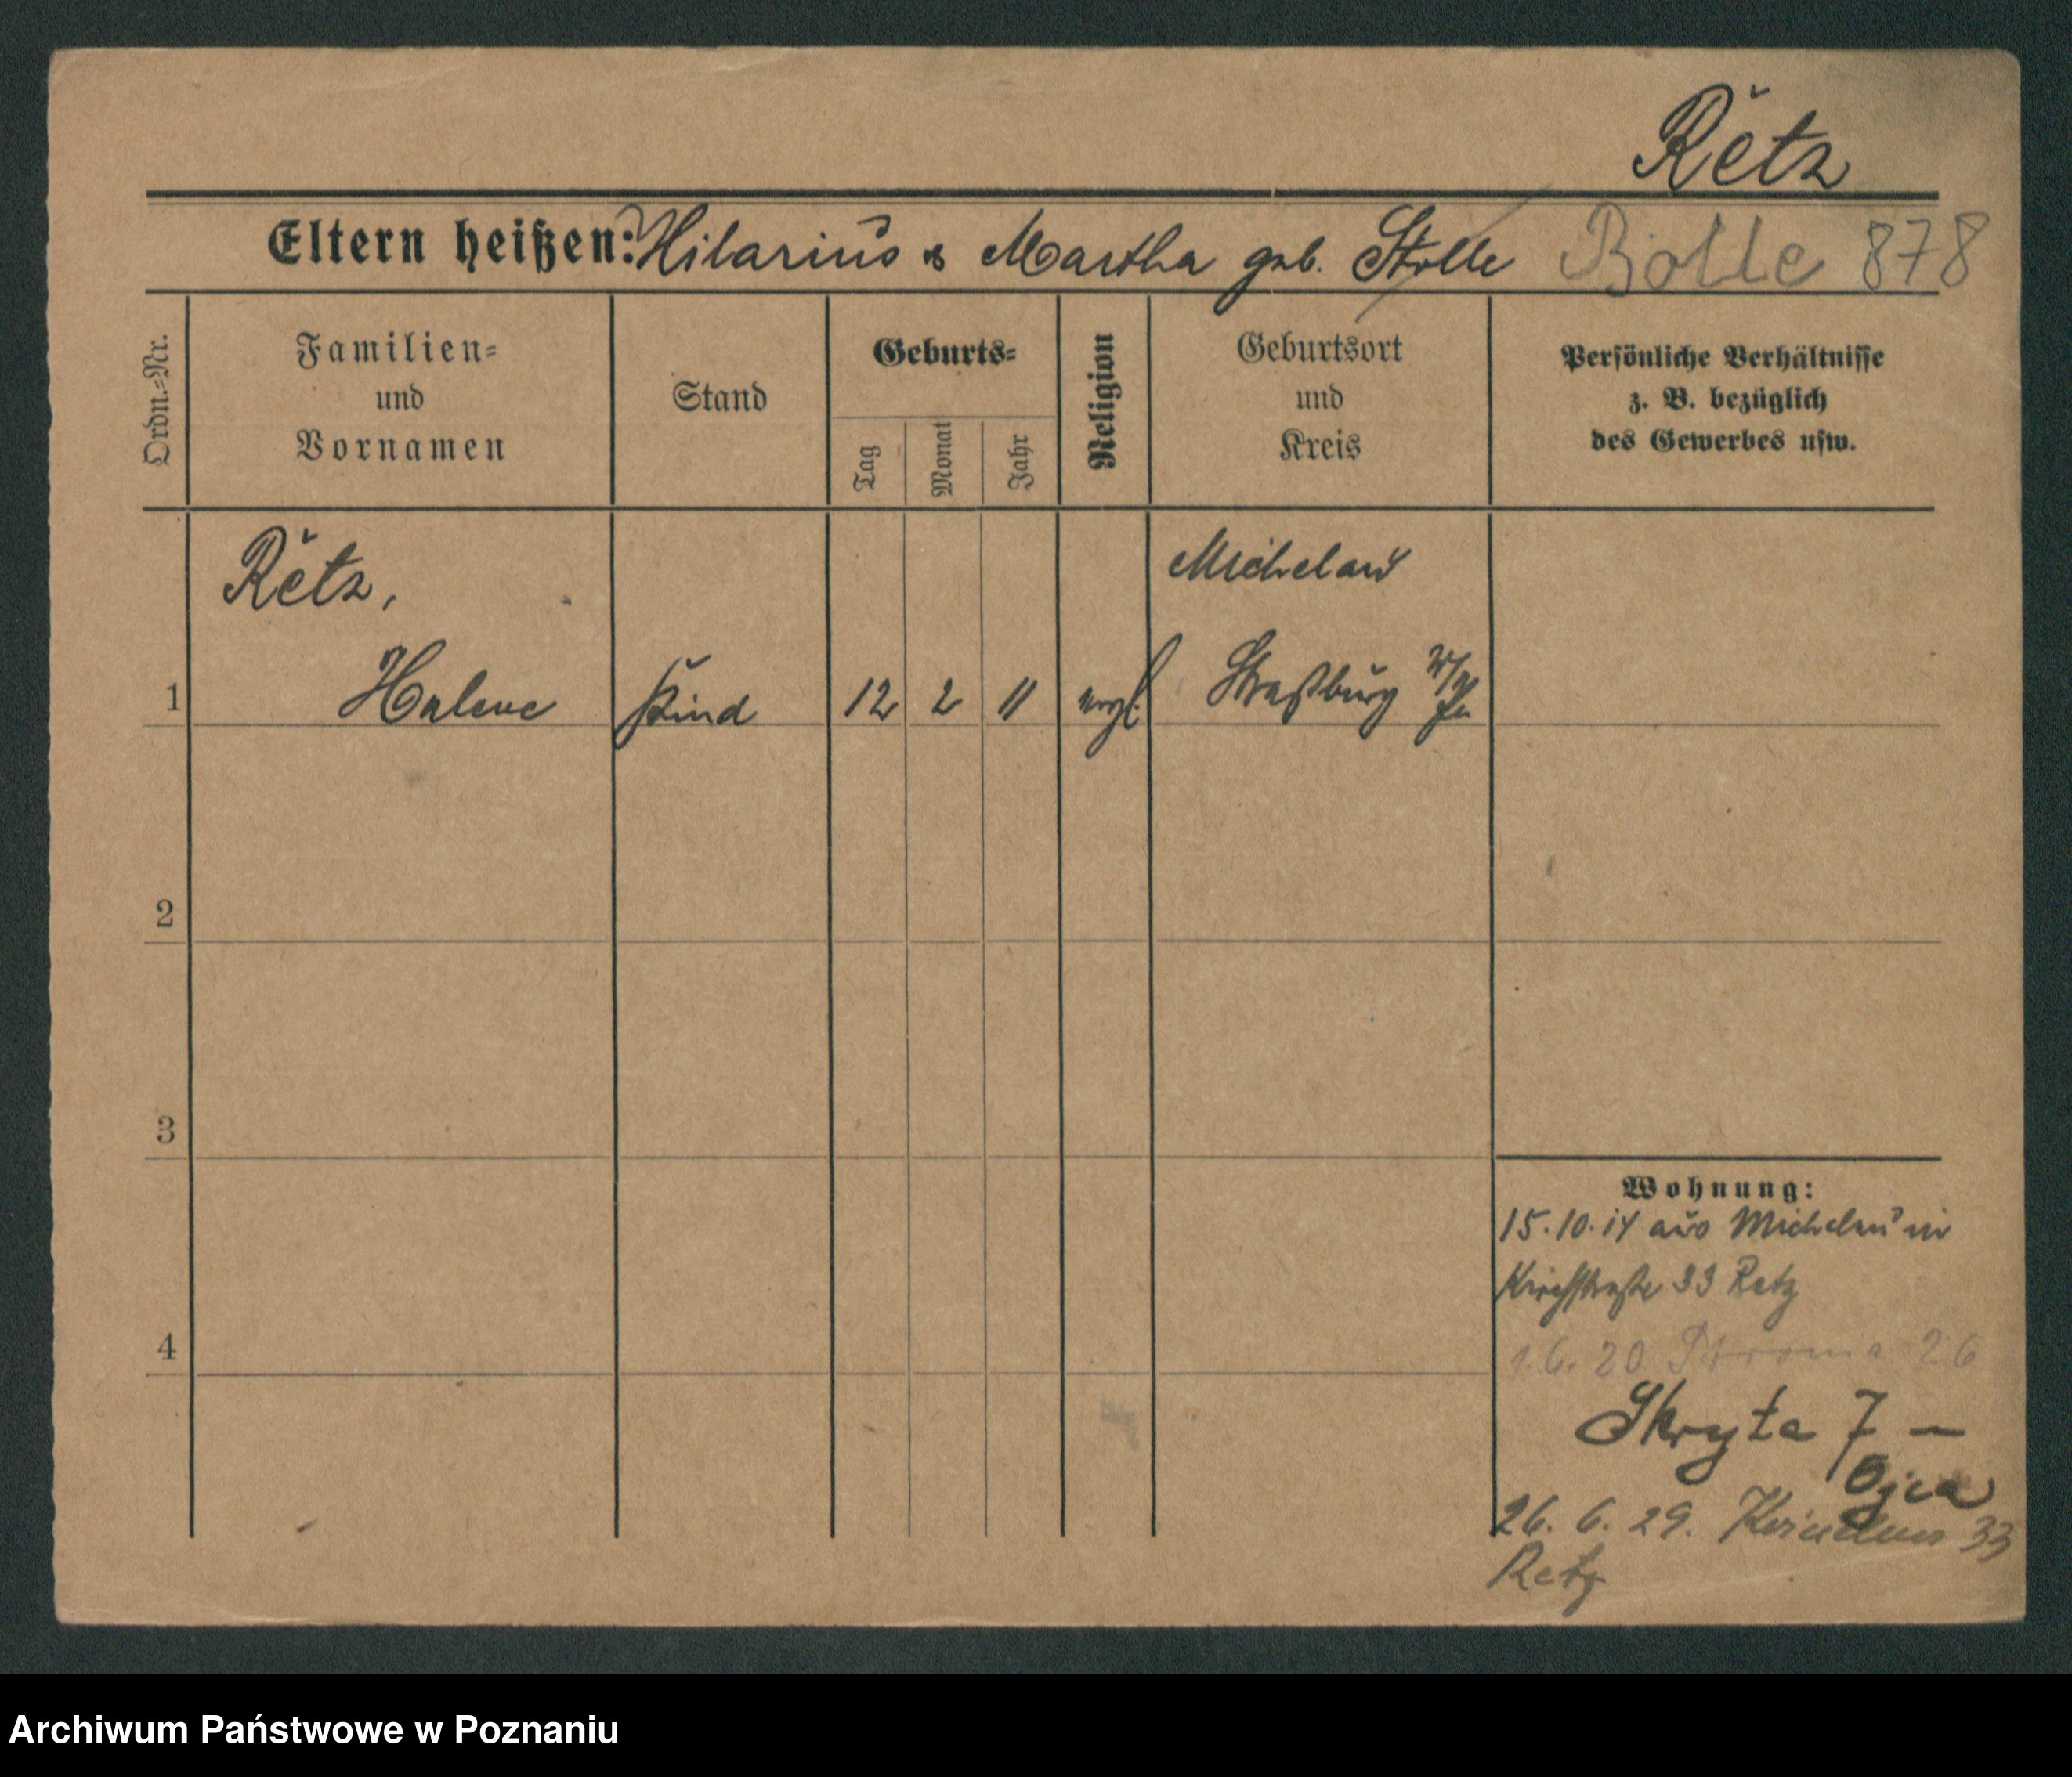 Retz
Eltern heißen: Hilarius & Martha geb. Stolle Bolle 878
Ordn.-Nr.
Familien-
und
Vornamen
Stand
Geburts-
Tag
Monat
Jahr
Religion
Geburtsort
und
Kreis
Persönliche Verhältnisse
z. B. bezüglich
des Gewerbes usw.
Retz,
Michelau
1 Helene Kind 12 2 11 evgl. Straßburg W/Pr
2
3
Wohnung:
15.10.14 aus Michelau in
Kirchstraße 33 Retz
4
1.6.20 26
Skryta 7 —
Ojca
26.6.29. 33
Retz
Archiwum Państwowe w Poznaniu